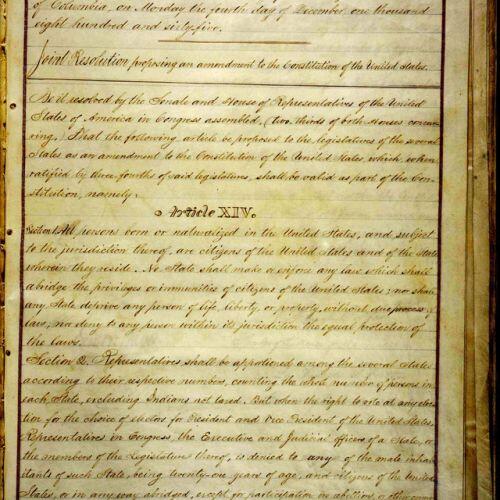 of Columbia, on Monday the fourth day of December one thousand
eight hundred and sixty-five.
Joint Resolution proposing an amendment to the Constitution of the United States.
Be it resolved by the Senate and House of Representatives of the United
States of America in Congress assembled, (two thirds of both Houses concur-
ring,) That the following article be proposed to the legislatures of the several
States as an amendment to the Constitution of the United States, which, when
ratified by three fourths of said legislatures, shall be valid as part of the Con-
stitution, namely:
Article XIV.
Section 1. All persons born or naturalized in the United States, and subject
to the jurisdiction thereof, are citizens of the United States and of the State
wherein they reside. No State shall make or enforce any law which shall
abridge the privileges or immunities of citizens of the United States; nor shall
any State deprive any person of life, liberty, or property, without due process of
law, nor deny to any person within its jurisdiction the equal protection of
the laws.
Section 2. Representatives shall be apportioned among the several States
according to their respective numbers, counting the whole number of persons in
each State, excluding Indians not taxed. But when the right to vote at any elec-
tion for the choice of electors for President and Vice President of the United States,
Representatives in Congress, the Executive and Judicial officers of a State, or
the members of the Legislature thereof, is denied to any of the male inhab-
itants of such State, being twenty-one years of age, and citizens of the United
States, or in any way abridged, except for participation in rebellion or other crime